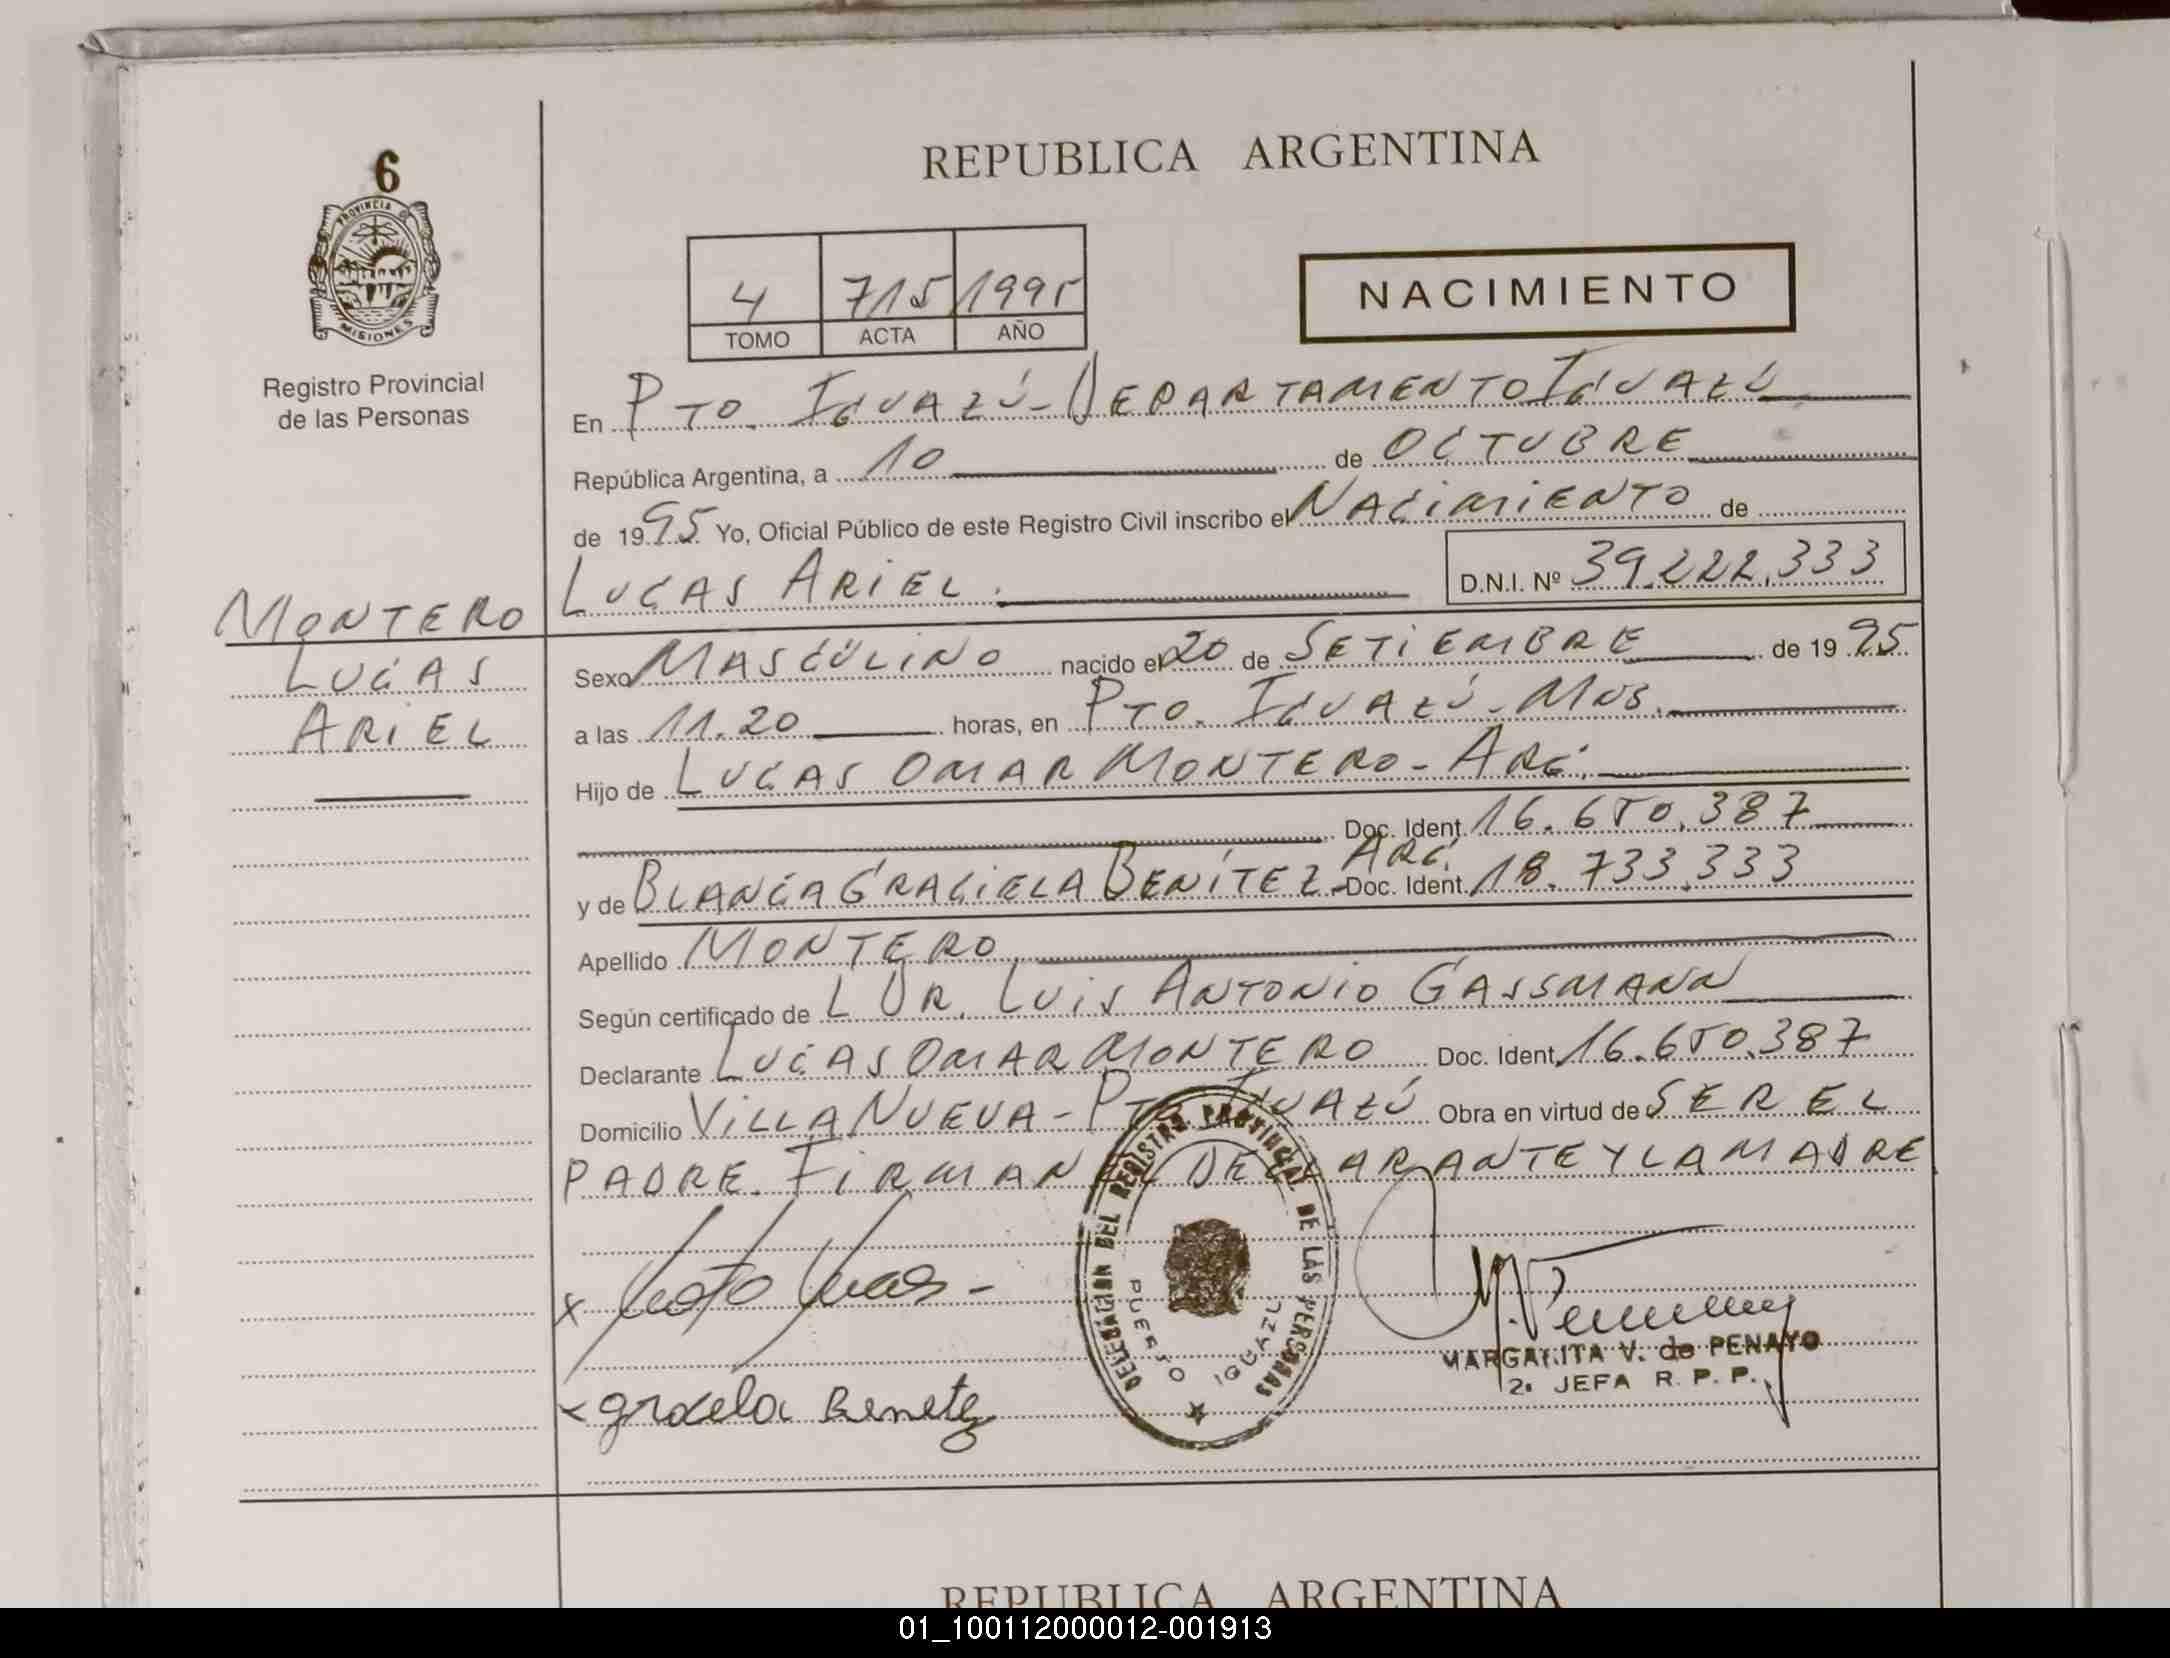 6
PROVINCIA
MISIONES
Registro Provincial
de las Personas
MONTERO
LUCAS
ARIEL
REPUBLICA ARGENTINA
4 715 1995
TOMO ACTA AÑO
NACIMIENTO
En PTO. IGUAZÚ - DEPARTAMENTO IGUAZÚ
República Argentina, a 10 de OCTUBRE
de 1995 Yo, Oficial Público de este Registro Civil inscribo el NACIMIENTO de
LUCAS ARIEL. D.N.I. Nº 39.222.333
Sexo MASCULINO nacido el 20 de SETIEMBRE de 1995
a las 11.20 horas, en PTO. IGUAZÚ - MNS.
Hijo de LUCAS OMAR MONTERO - ARG.
Doc. Ident. 16.650.387
y de BLANCA GRACIELA BENÍTEZ - ARG. Doc. Ident. 18.733.333
Apellido MONTERO
Según certificado de L DR. LUIS ANTONIO GASSMANN
Declarante LUCAS OMAR MONTERO Doc. Ident. 16.650.387
Domicilio VILLA NUEVA - PTO. IGUAZÚ Obra en virtud de SER EL
PADRE. FIRMAN EL DECLARANTE Y LA MADRE
DELEGACION DEL REGISTRO PROVINCIAL DE LAS PERSONAS
PUERTO IGUAZU
x
MARGARITA V. de PENAYO
2ª JEFA R. P. P.
x graciela Benetez
REPUBLICA ARGENTINA
01_100112000012-001913